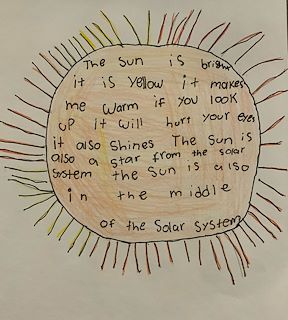 The Sun is bright
it is yellow it makes
me warm if you look
up it will hurt your eyes
it also shines The Sun is
also a star from the solar
system the Sun is also
in the middle
of the Solar System